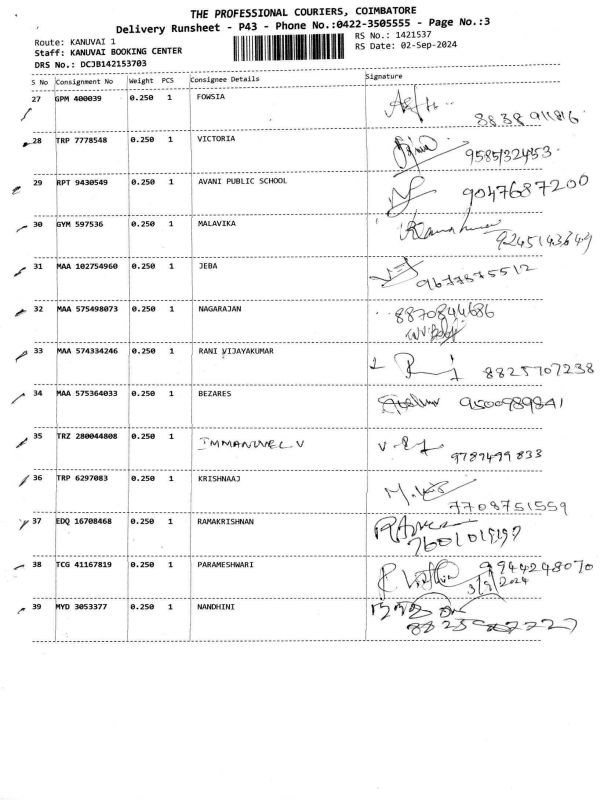 THE PROFESSIONAL COURIERS, COIMBATORE
Delivery Runsheet - P43 - Phone No.:0422-3505555 - Page No.:3
Route: KANUVAI 1
Staff: KANUVAI BOOKING CENTER
DRS No.: DCJB142153703
RS No.: 1421537
RS Date: 02-Sep-2024
S No Consignment No Weight PCS Consignee Details Signature
27 GPM 400039 0.250 1 FOWSIA
28 TRP 7778548 0.250 1 VICTORIA
29 RPT 9430549 0.250 1 AVANI PUBLIC SCHOOL 9047687200
30 GYM 597536 0.250 1 MALAVIKA
31 MAA 102754960 0.250 1 JEBA 9677875512
32 MAA 575498073 0.250 1 NAGARAJAN 8870844686
33 MAA 574334246 0.250 1 RANI VIJAYAKUMAR 8825707238
34 MAA 575364033 0.250 1 BEZARES 9500989841
35 TRZ 280044808 0.250 1 IMMANUVEL V 9787499833
36 TRP 6297083 0.250 1 KRISHNAAJ 7708751559
37 EDQ 16708468 0.250 1 RAMAKRISHNAN
38 TCG 41167819 0.250 1 PARAMESHWARI 9944248070
3/9/2024
39 MYD 3053377 0.250 1 NANDHINI